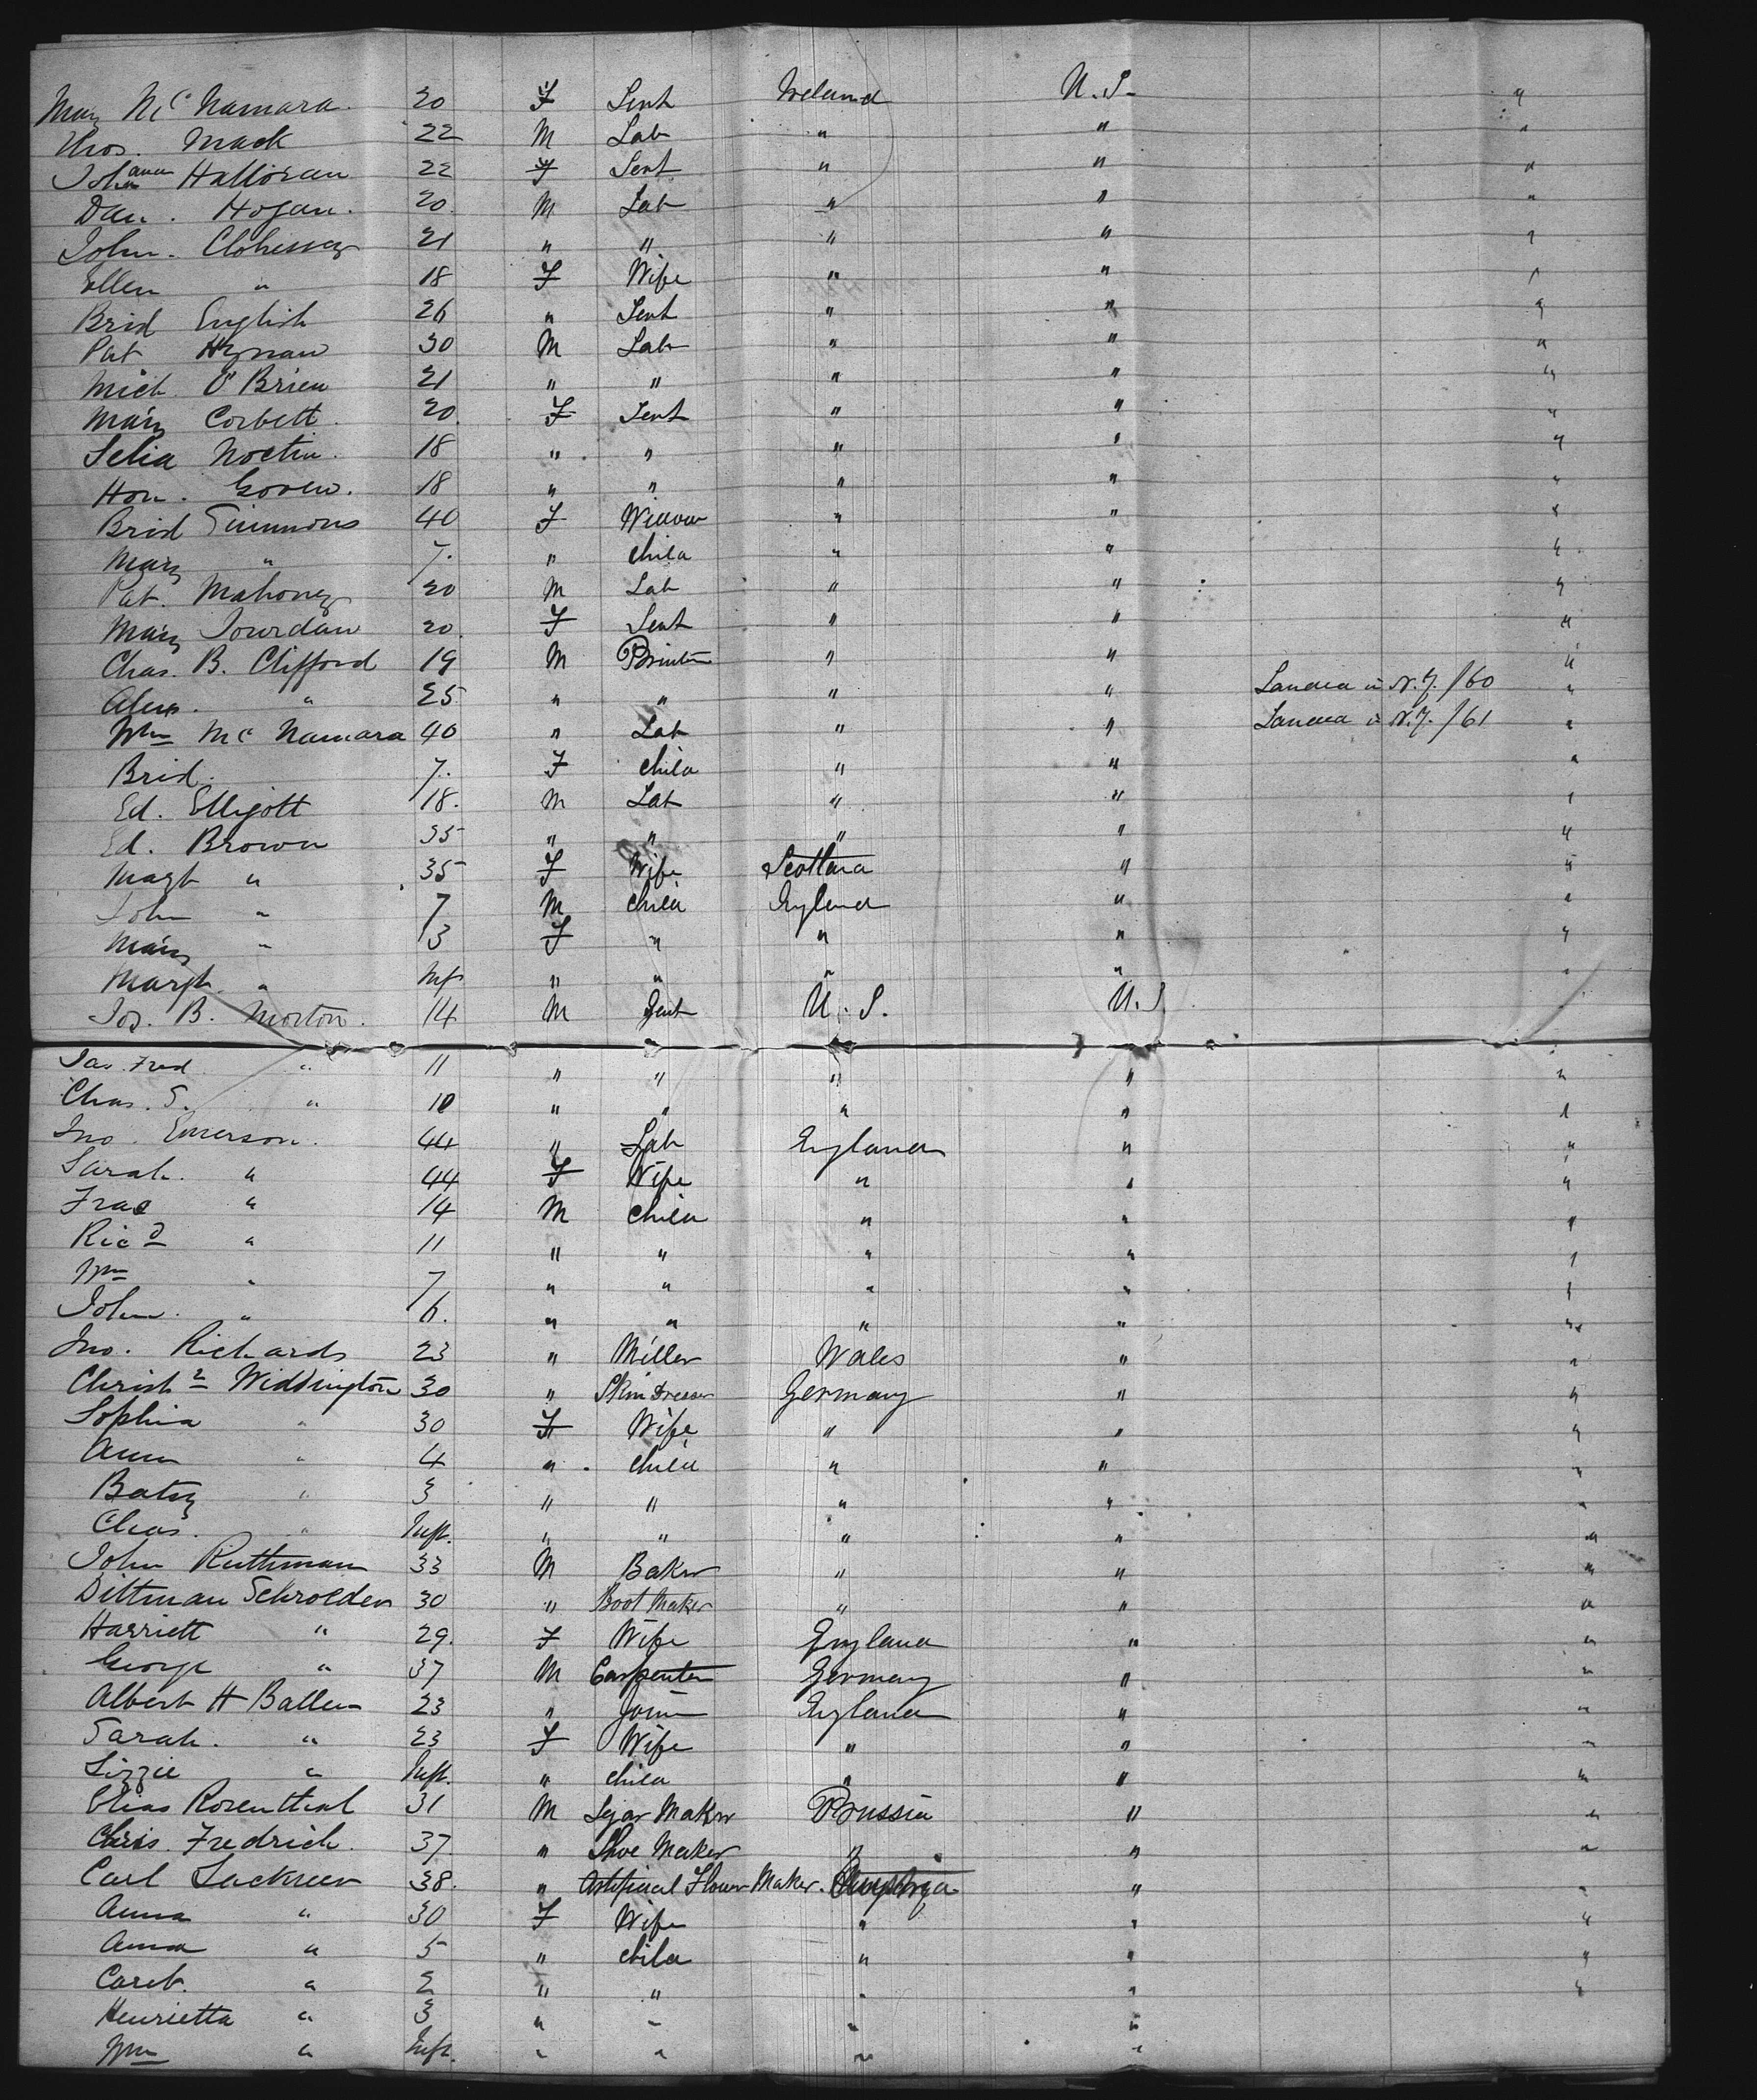 Mary McNamara. 20 F Servt Ireland U.S. "
Thos. Mack 22 M Lab " " "
Johanna Halloran 22 F Servt " " "
Dan. Hogan. 20. M Lab " " "
John. Clohessy 21 " " " " "
Ellen " 18 F Wife " " "
Brid English 26 " Servt " " "
Pat Hynan 30 M Lab " " "
Mich. O'Brien 21 " " " " "
Mary Corbett. 20. F Servt " " "
Selia Noctin. 18 " " " " "
Hon. 18 " " " " "
Brid Simmons 40 F Widow " " "
Mary " 7. " Child " " "
Pat. Mahoney 20 M Lab " " "
Mary Jourdan 20. F Servt " " "
Chas. B. Clifford 19 M Printer " " "
Alex. " 25 " " " " Landed in N.Y. /60 "
Wm McNamara 40 " Lab " " Landed in N.Y. /61 "
Brid. 7. F Child " " "
Ed. Elligott 18. M Lab " " "
Ed. Brown 35 " " " " "
Margt " 35 F Wife Scotland " "
John " 7 M Child England " "
Mary " 3 F " " " "
Margt. " Inf " " " " "
Jos. B. Morton. 14 M Gent U.S. U.S.
Jas. Fred " 11 " " " " "
Chas. S. " 10 " " " " "
Jno. Emerson. 44 " Lab England " "
Sarah. " 44 F Wife " " "
Fred " 14 M Child " " "
Ricd " 11 " " " " "
Wm " 7 " " " " "
John. " 6. " " " " "
Jno. Richards 23 " Miller Wales " "
Christn Widdington 30 " Skin Dresser Germany " "
Sophia " 30 F Wife " " "
Ann " 4 " Child " " "
Batsy " 3 " " " " "
Chas. " Inft. " " " " "
John Ruthman 33 M Baker " " "
Dittman Schrolder 30 " Boot Maker " " "
Harriett " 29. F Wife England " "
George " 37 M Carpenter Germany " "
Albert H Ballen 23 " Joiner England " "
Sarah. " 23 F Wife " " "
Lizzie " Inft. " Child " " "
Elias Rosenthal 31 M Segar Maker Prussia " "
Chris. Fredrich. 37. " Shoe Maker " " "
Carl Lackner 38. " Artificial Flower Maker. " "
Anna " 30 F Wife " " "
Anna " 5 " Child " " "
" 2 " " " " "
Henrietta " 3 " " " "
Wm " Inft. " " " "